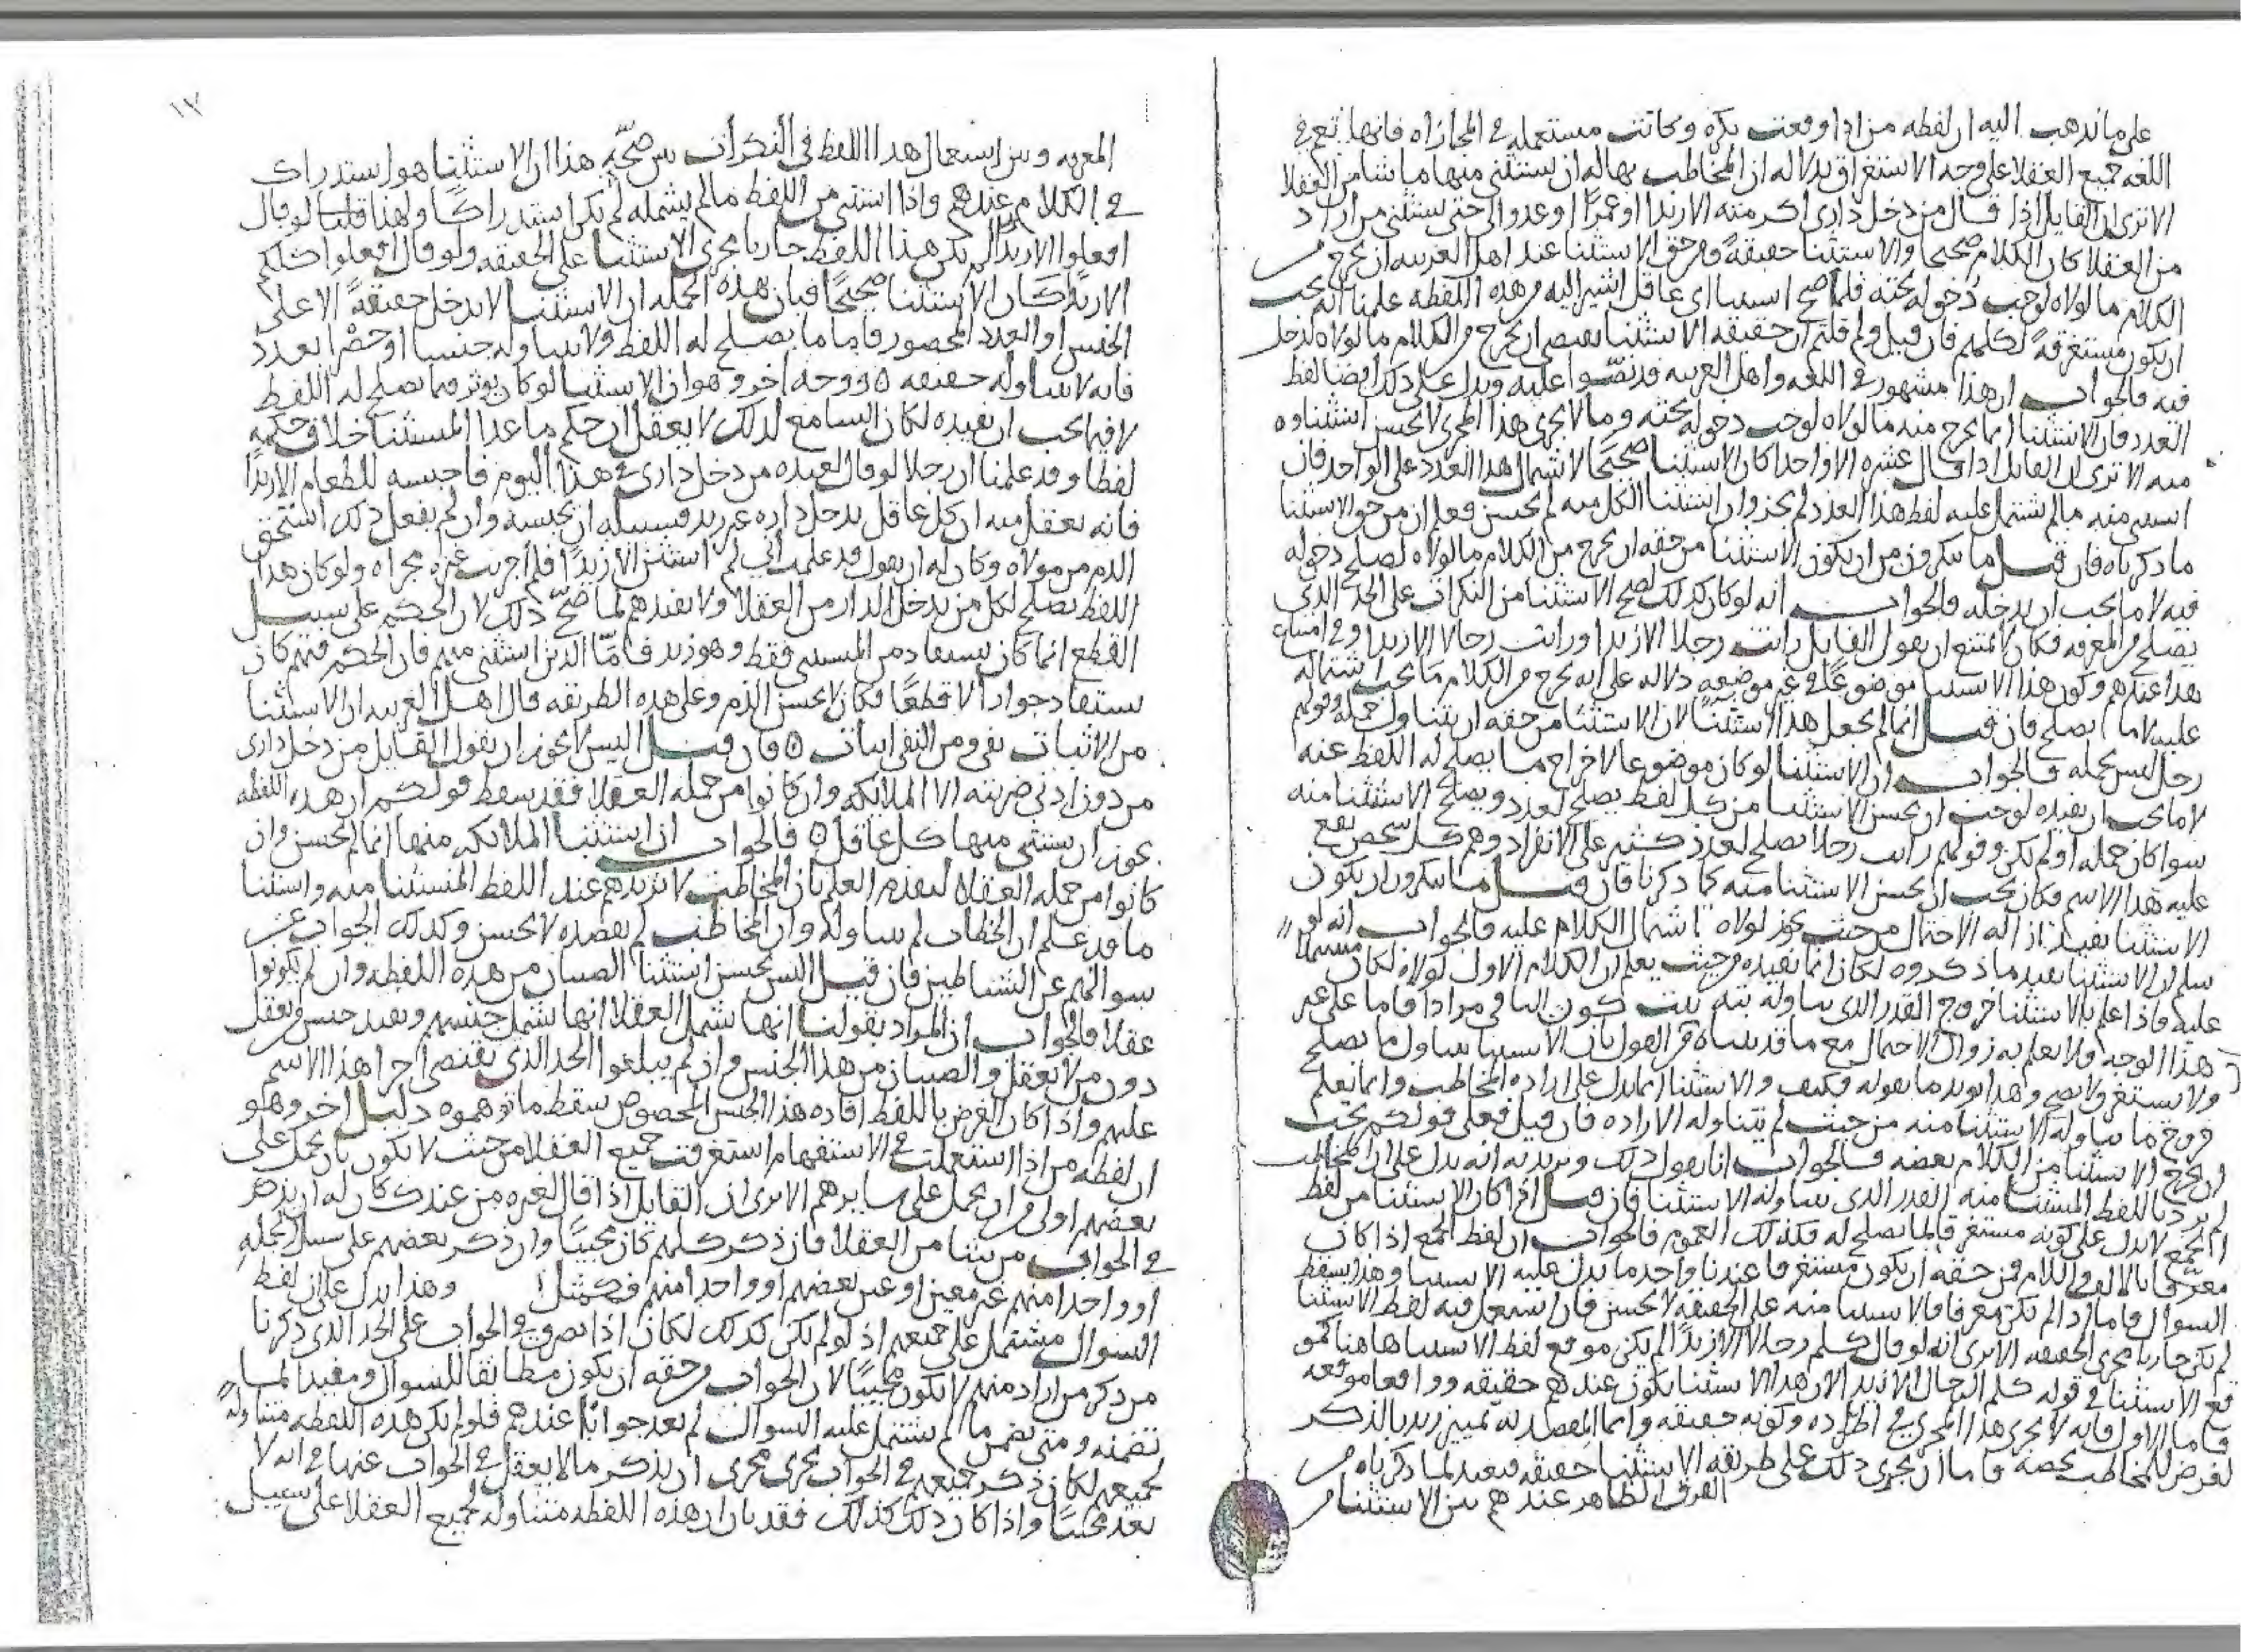 على ما نذهب اليه ان لفظه من اذا وقعت نكره وكانت مستعمله في المجازاه فانها تعم في
اللغه جميع العقلا على وجه الاستغراق بدلاله ان المخاطب بها له ان يستثنى منها ما شا من العقلا
الا ترى ان القايل اذا قال من دخل دارى اكرمته الا زيدا او عمرًا او عدو الى حتى يستثنى من اراد
من العقلا كان الكلام صحيحا والاستثنا حقيقةً ومن حق الاستثنا عند اهل العربيه ان يخرج من
الكلام ما لولاه لوجب دخوله تحته فلما صح استثنا اى عاقل اشير اليه من هذه اللفظه علمنا انه يجب
ان يكون مستغرقةً لكلهم فان قيل ولم قلتم ان حقيقه الاستثنا يقتضى ان يخرج من الكلام ما لولاه لدخل
فيه فالجواب ان هذا مشهور في اللغه واهل العربيه قد نصّوا عليه ويدل على ذلك ايضا لفظ
العدد فان الاستثنا انما يخرج منه ما لولاه لوجب دخوله تحته وما لا يجرى هذا المجرى لا يحسن استثناوه
منه الا ترى ان القايل اذا قال عشره الا واحدا كان الاستثنا صحيحًا لاشتمال هذا العدد على الواحد فان
استثنى منه ما لم يشتمل عليه لفظ هذا العدد لم يجز وان استثنا الكل منه لم يحسن فعلم ان من حق الاستثنا
ما ذكرناه فان قيل ما تنكرون من ان يكون الاستثنا من حقه ان يخرج من الكلام ما لولاه لصلح دخوله
فيه لا ما يجب ان يدخله فالجواب انه لو كان كذلك لصح الاستثنا من النكرات على الحد الذى
يصلح من المعرفه فكان لا يمتنع ان يقول القايل رايت رجلا الا زيدا ورايت رجالا الا زيدا وفي امتناع
هذا عندهم وكون هذا الاستثنا موضوعًا في غير موضعه دلاله على انه يخرج من الكلام ما يجب اشتماله
عليه لا ما يصلح فان قيل انما لم يجعل هذا استثنًا لان الاستثنا من حقه ان يتناول جمله وقولهم
رجل ليس بجمله فالجواب ان الاستثنا لو كان موضوعا لاخراج ما يصلح له اللفظ عنه
لا ما يجب ان يفيده لوجب ان يحسن الاستثنا من كل لفظ يصلح لعدد ويصلح الاستثنا منه
سوا كان جمله او لم يكن وقولهم رايت رجلا يصلح لعدد كثير على الانفراد وهم كل شخص يقع
عليه هذا الاسم فكان يجب ان يحسن الاستثنا منه كما ذكرنا فان قيل ما تنكرون ان يكون
الاستثنا يفيد ازاله الاحتمال من حيث يجوز لولاه اشتمال الكلام عليه فالجواب انه لو
سلم ان الاستثنا يفيد ما ذكروه لكان انما يفيده من حيث يعلم ان الكلام الاول لولاه لكان مشتملا
عليه فاذا علم بالاستثنا خروج القدر الذى تناوله بنه ثبت كون الباقى مرادا فاما على غير
هذا الوجه فلا يعلم به زوال الاحتمال مع ما قد بيناه من القول بان الاستثنا يتناول ما يصلح
ولا يستغرق لا يصح وهذا يويد ما نقوله فكيف والاستثنا انما يدل على اراده المخاطب وانما يعلم
خروج ما تناوله الاستثنا منه من حيث لم تتناوله الاراده فان قيل فعلى قولكم يجب
ان يخرج الاستثنا من الكلام بعضه فالجواب انا نقول ذلك ونريد به انه يدل على ان المخاطب
لم يرد باللفظ المستثنا منه القدر الذى تناوله الاستثنا فان قيل اذا كان الاستثنا من لفظ
الجمع لا يدل على كونه مستغرقا لما يصلح له فكذلك العموم فالجواب ان لفظ الجمع اذا كان
معرفا بالالف واللام فمن حقه ان يكون مستغرقا عندنا واحد ما يدل عليه الاستثنا وهذا يسقط
السوال فاما اذا لم يكن معرفا فالاستثنا منه على الحقيقه لا يحسن فان استعمل فيه لفظ الاستثنا
لم يكن جاريا مجرى الحقيقه الا ترى انه لو قال كلم رجالا الا زيدًا لم يكن موقع لفظ الاستثنا هاهنا كموقع
الاستثنا في قوله كلم الرجال الا زيدا لان هذا الاستثنا يكون عندهم حقيقه وواقعا موقعه
فاما الاول فانه لا يجرى هذا المجرى في اطراده وكونه حقيقه وانما القصد به تمييز زيد بالذكر
لغرض للمخاطب يخصه فاما ان يجرى ذلك على طريقه الاستثنا حقيقه فبعيد لما ذكرناه من
الفرق الظاهر عندهم بين الاستثنا من
١٧
المعرفه وبين استعمال هذا اللفظ في النكرات يبين صحّة هذا ان الاستثنا هو استدراك
في الكلام عندهم واذا استثنى من اللفظ ما لم يشمله لم يكن استدراكًا ولهذا قلنا لو قال
افعلوا الا زيدًا لم يكن هذا اللفظ جاريا مجرى الاستثنا على الحقيقه ولو قال افعلوا كلكم
الا زيدًا كان الاستثنا صحيحًا فبان بهذه الجمله ان الاستثنا لا يدخل حقيقةً الا على
الجنس او العدد المحصور فاما ما يصلح له اللفظ ولا يتناوله جنسا او حصرًا بعدد
فانه لا يتناوله حقيقه ٥ ووجه اخر وهو ان الاستثنا لو كان يوثر فيما يصلح له اللفظ
لا فيما يجب ان يفيده لكان السامع لذلك لا يعقل ان حكم ما عدا المستثنا خلاف حكمه
لفظا وقد علمنا ان رجلا لو قال لعبده من دخل دارى في هذا اليوم فاحبسه للطعام الا زيدًا
فانه يعقل منه ان كل عاقل يدخل داره غير زيد فسبيله ان يحبسه وان لم يفعل ذلك استحق
الذم من مولاه وكان له ان يقول قد علمت انى لم استثن الا زيدًا فلم اجريت غيره مجراه ولو كان هذا
اللفظ يصلح لكل من يدخل الدار من العقلا ولا يفيدهم لما صحّ ذلك لان الحكم على سبيل
القطع انما كان يستفاد من المستثنى فقط وهو زيد فامّا الذين استثنى منهم فان الحكم فيهم كان
يستفاد جوازا لا قطعًا فكان لا يحسن الذم وعلى هذه الطريقه قال اهل العربيه ان الاستثنا
من الاثبات نفى ومن النفى اثبات ٥ فان قيل اليس لا يجوز ان يقول القايل من دخل دارى
من دون اذنى ضربته الا الملايكه وان كانوا من جمله العقلا فقد سقط قولكم ان هذه اللفظه
يجوز ان يستثنى منها كل عاقل ٥ فالجواب ان استثنا الملايكه منها انما لم يحسن وان
كانوا من جمله العقلا لتقدم العلم بان المخاطب لا يريدهم عند اللفظ المستثنا منه واستثنا
ما قد علم ان الخطاب لم يتناوله وان المخاطب لم يقصده لا يحسن وكذلك الجواب عن
سوالهم عن الشياطين فان قيل اليس يحسن استثنا الصبيان من هذه اللفظه وان لم يكونوا
عقلا فالجواب ان المراد بقولنا انها تشمل العقلا انها تشمل جنسهم وتفيد جنس من يعقل
دون من لا يعقل والصبيان من هذا الجنس وان لم يبلغوا الحد الذى يقتضى اجرا هذا الاسم
عليهم واذا كان الغرض باللفظ افاده هذا الجنس المخصوص سقط ما توهموه دليل اخر وهو
ان لفظه من اذا استعملت في الاستفهام استغرقت جميع العقلا من حيث لا يكون بان يحمل على
بعضهم اولى من ان يحمل على سايرهم الا ترى ان القايل اذا قال لغيره من عندك كان له ان يذكر
في الجواب من شا من العقلا فان ذكر كلهم كان مجيبًا وان ذكر بعضهم على سبيل الجملة
او واحدا منهم غير معين او عين بعضهم او واحدا منهم فكمثل! وهذا يدل على ان لفظ
السوال مشتمل على جميعهم اذ لو لم يكن كذلك لكان اذا تصرف في الجواب على الحد الذى ذكرنا
من ذكر من اراد منهم لا يكون مجيبًا لان الجواب من حقه ان يكون مطابقا للسوال ومفيدا لما
تضمنه ومتى تضمن ما لم يشتمل عليه السوال لم يعد جوابًا عندهم فلو لم تكن هذه اللفظه متناولةً
لجميعهم لكان ذكر جميعهم في الجواب يجرى مجرى ان يذكر ما لا يعقل في الجواب عنها في انه لا
يعد مجيبًا واذا كان ذلك كذلك فقد بان ان هذه اللفظه متناوله لجميع العقلا على سبيل